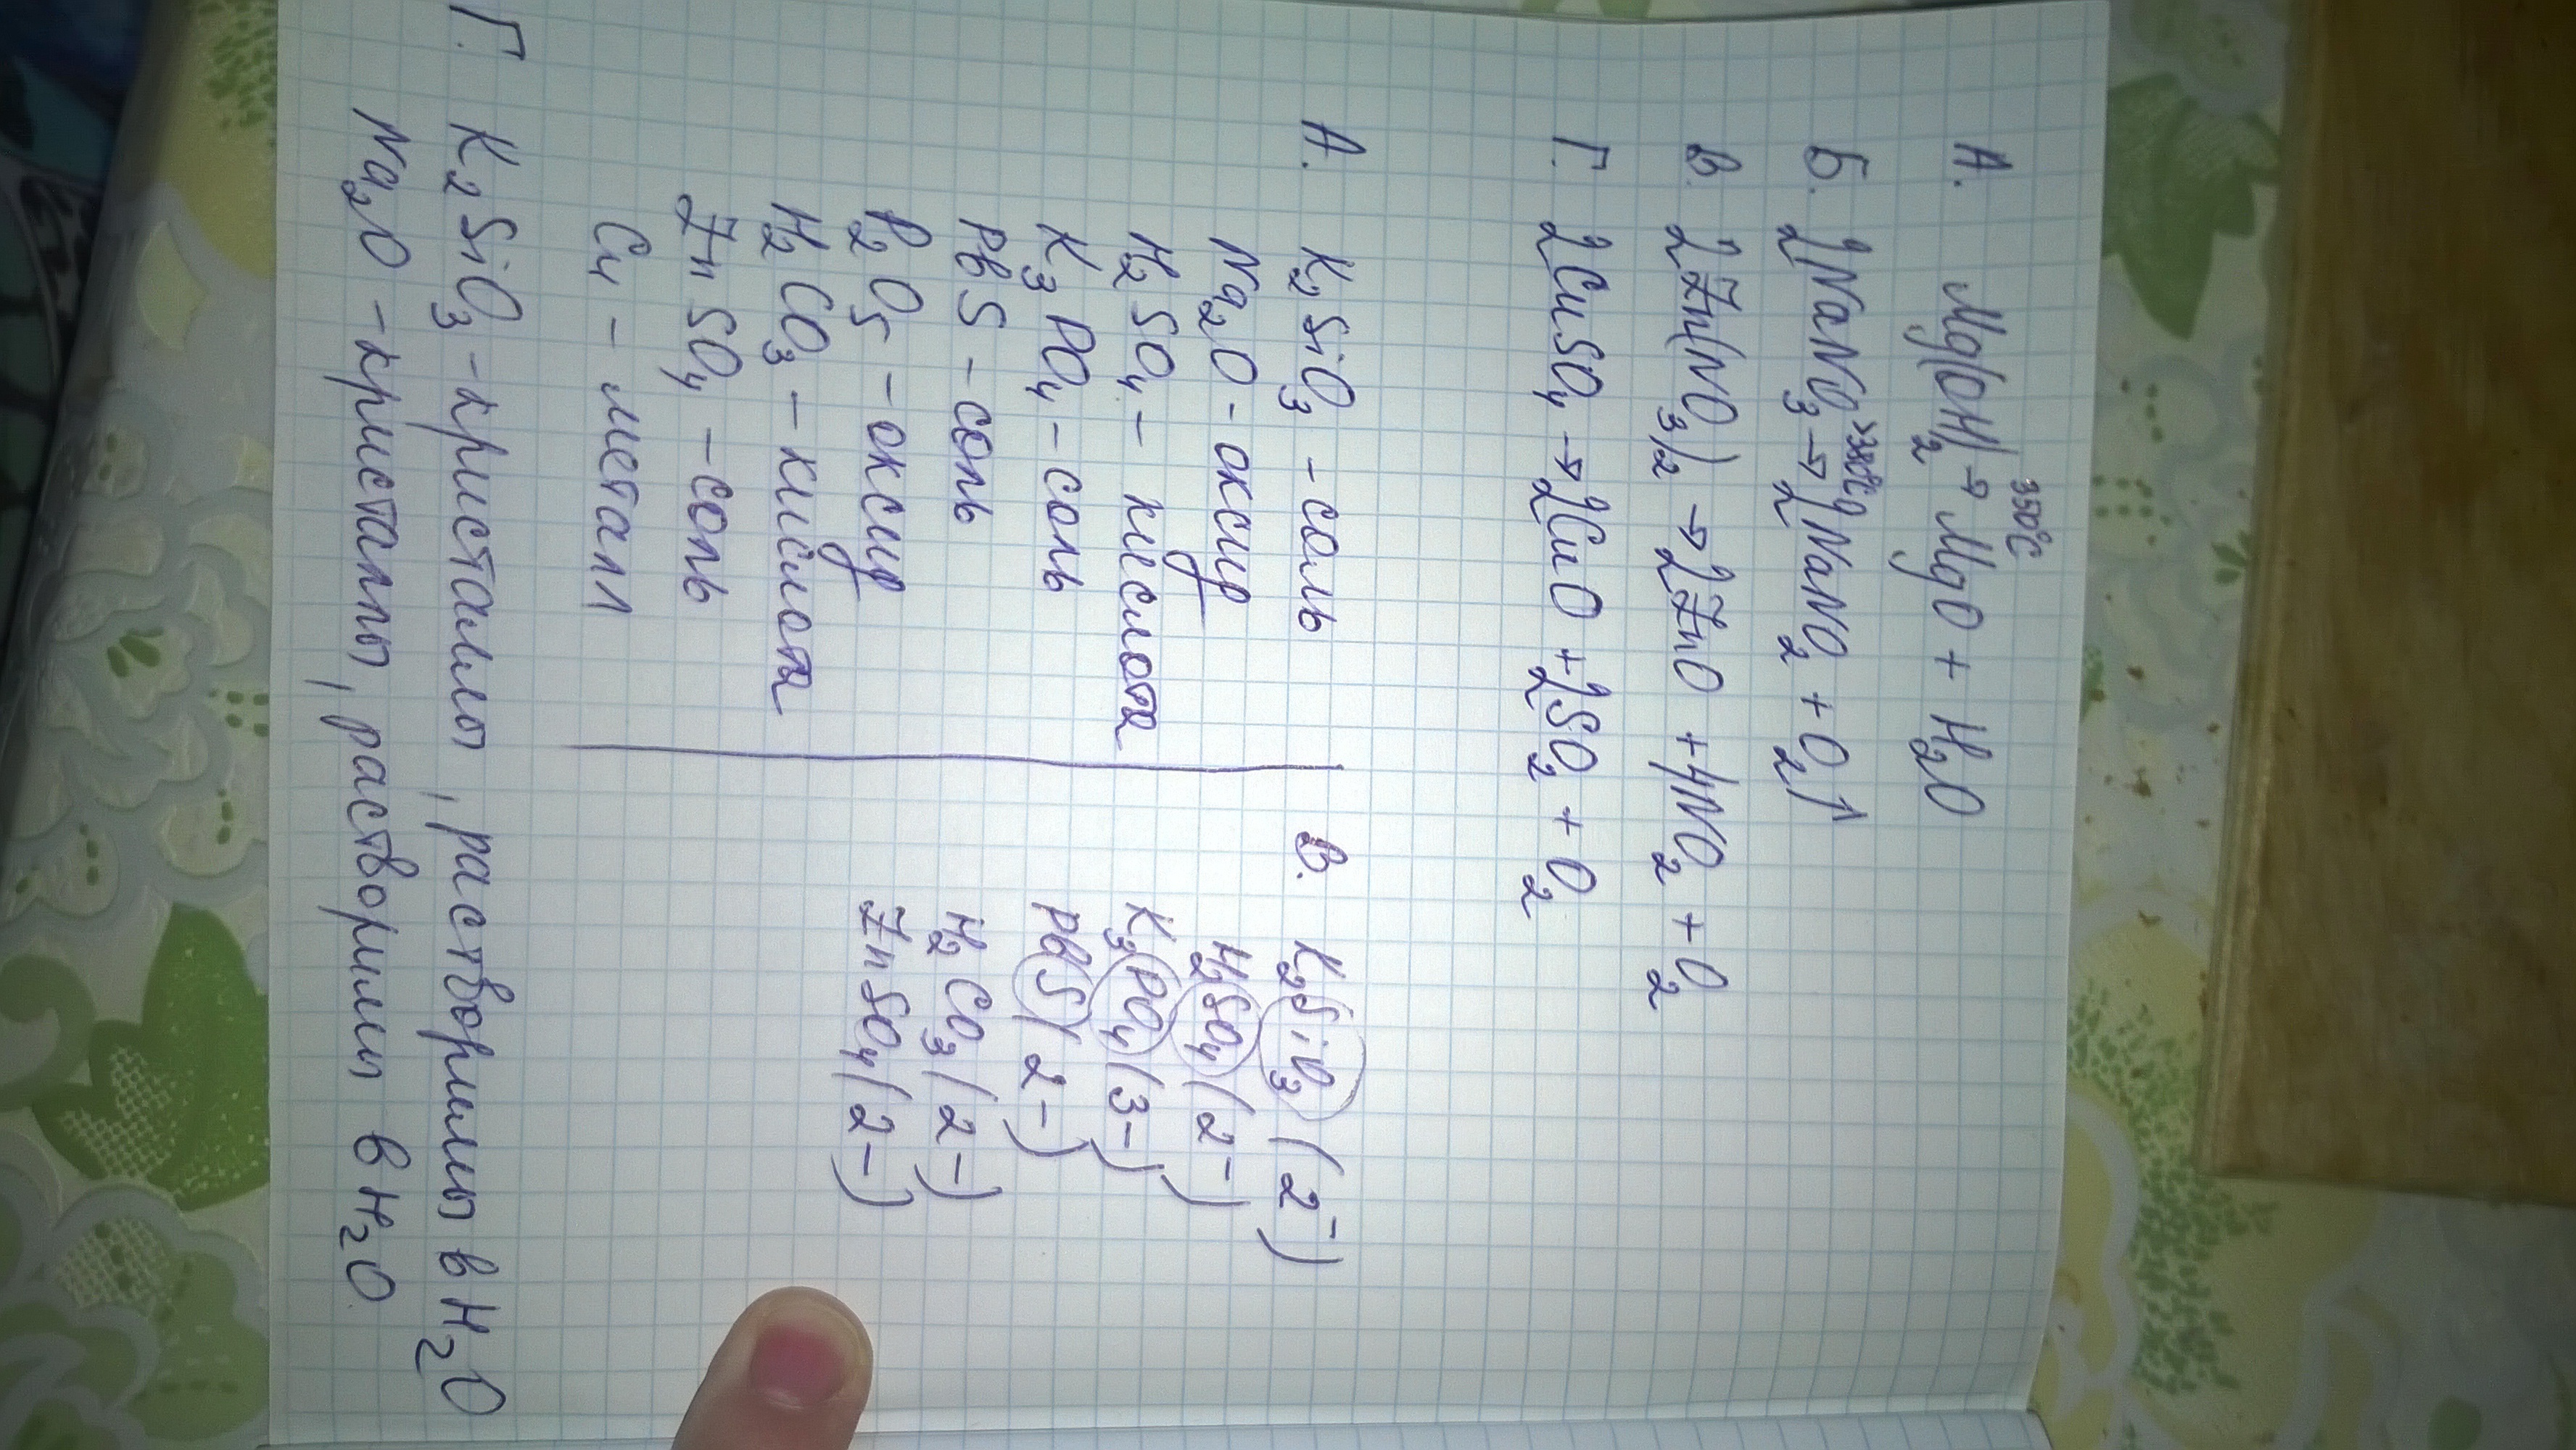 А. Mg(OH)₂ →³⁵⁰°ᶜ MgO + H₂O
Б. 2NaNO₃ → 2NaNO₂ + O₂↑
В. 2Zn(NO₃)₂ → 2ZnO + 4NO₂ + O₂
Г. 2CuSO₄ → 2CuO + 2SO₂ + O₂
А. K₂SiO₃ - соль
Na₂O - оксид
H₂SO₄ - кислота
K₃PO₄ - соль
PbS - соль
P₂O₅ - оксид
H₂CO₃ - кислота
ZnSO₄ - соль
Cu - метал
В. K₂SiO₃ (2-)
H₂SO₄ (2-)
K₃PO₄ (3-)
PbS (2-)
H₂CO₃ (2-)
ZnSO₄ (2-)
Г. K₂SiO₃ - кристаллы, растворимы в H₂O
Na₂O - кристаллы, растворимы в H₂O